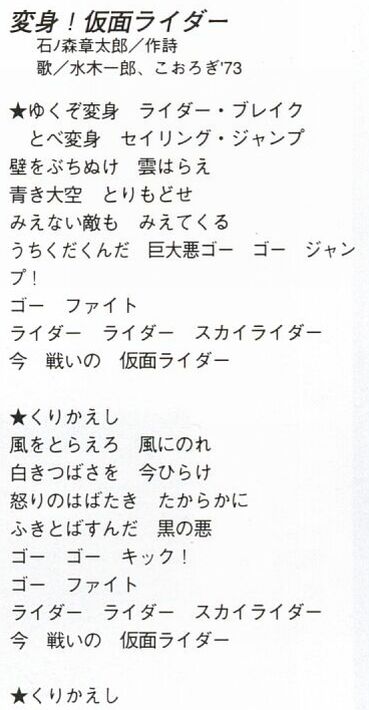 変身！仮面ライダー
石ノ森章太郎／作詩
歌／水木一郎、こおろぎ'73
★ゆくぞ変身　ライダー・ブレイク
とべ変身　セイリング・ジャンプ
壁をぶちぬけ　雲はらえ
青き大空　とりもどせ
みえない敵も　みえてくる
うちくだくんだ　巨大悪ゴー　ゴー　ジャン
プ！
ゴー　ファイト
ライダー　ライダー　スカイライダー
今　戦いの　仮面ライダー
★くりかえし
風をとらえろ　風にのれ
白きつばさを　今ひらけ
怒りのはばたき　たからかに
ふきとばすんだ　黒の悪
ゴー　ゴー　キック！
ゴー　ファイト
ライダー　ライダー　スカイライダー
今　戦いの　仮面ライダー
★くりかえし